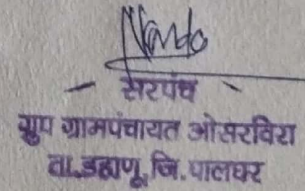 सरपंच
ग्रुप ग्रामपंचायत ओसरविरा
ता.डहाणू, जि.पालघर